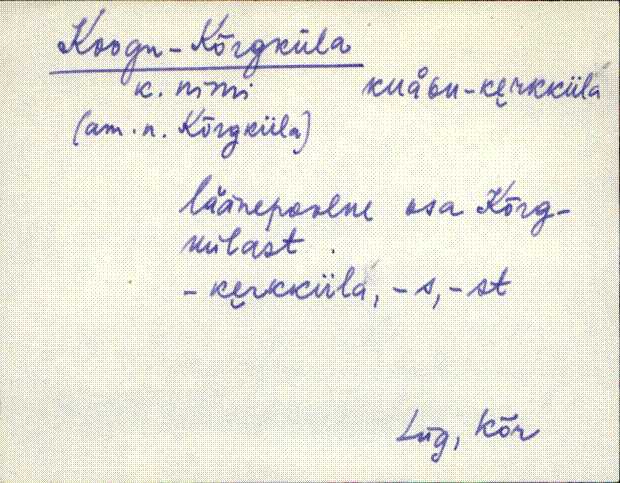 Koogu-Kõrgküla
k. nimi kuåɢu-kęrkküla
(am. n. Kõrgküla)
läänepoolne osa Kõrg-
külast.
-kęrkküla, -s, -st
Lüg, Kõr